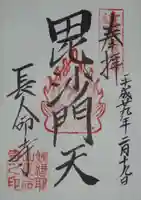 奉拝
平成廿九年二月十九日
毘沙門天
長命寺